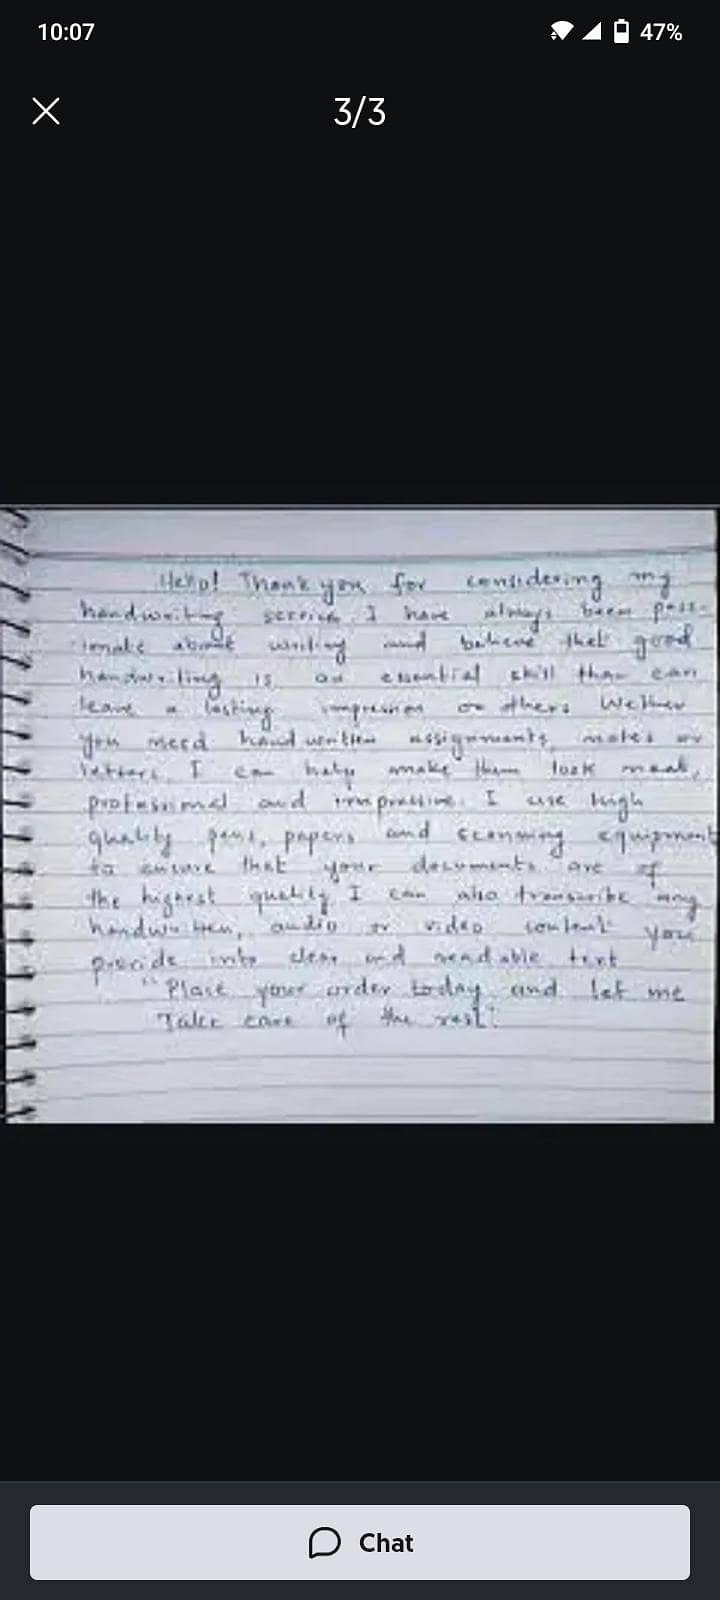 10:07
47%
3/3
Hello! Thank you for considering my
handwriting service. I have always been pass-
ionate about writing and believe that good
handwriting is an essential skill that can
leave a lasting impression on others
you need handwritten assignments, notes or
letters, I can help make them look neat,
professional and impressive. I use high
quality pens, papers and scanning equipment
to ensure that your documents are of
the highest quality I can also transcribe any
handwritten, audio or video content you
provide into clear and readable text
"Place your order today and let me
Take care of the rest."
Chat